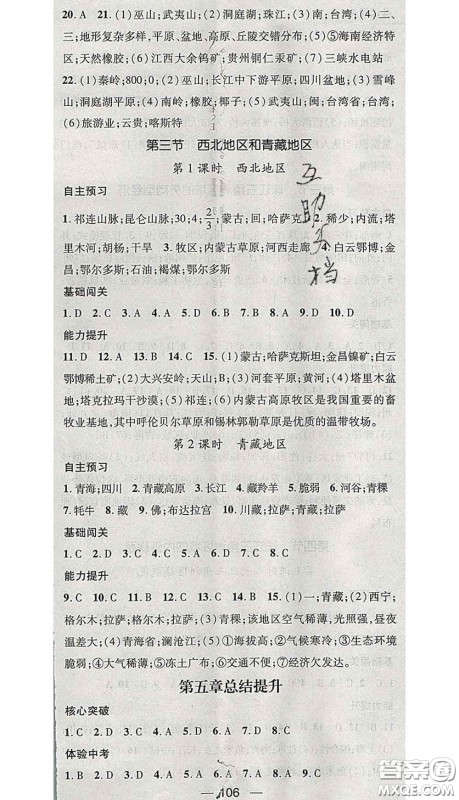 20. A 21. (1)巫山;武夷山;(2)洞庭湖;珠江;(3)南;台湾;(4)二、
三;地形复杂多样,平原、盆地、高原、丘陵交错分布;(5)海南经济特
区;天然橡胶;(6)江西大余钨矿;贵州铜仁汞矿;(7)三峡水电站
22. (1)秦岭;800;0;(2)巫山;长江中下游平原;四川盆地;(3)雪峰
山;洞庭湖平原;(4)南岭;橡胶;椰子;(5)武夷山;闽;台湾省;台湾;
(6)旅游业;云贵;喀斯特
第三节 西北地区和青藏地区
第1课时 西北地区
自主预习
1. 祁连山脉;昆仑山脉;30;4;2/3;蒙古;回;哈萨克 2. 稀少;内流;塔
里木河;胡杨;干旱 3. 牧区;内蒙古草原;河西走廊 4. 白云鄂博;金
昌;鄂尔多斯;石油;褐煤;鄂尔多斯
基础闯关
1. D 2. C 3. D 4. A 5. C 6. D 7. B 8. A 9. D 10. D
能力提升
11. D 12. A 13. B 14. C 15. (1)蒙古;哈萨克斯坦;金昌镍矿;白云
鄂博稀土矿;(2)大兴安岭;天山;B;(3)河套平原;黄河;(4)塔里木盆
地;塔克拉玛干沙漠;(5)祁连;(6)内蒙古高原牧区是我国重要的畜
牧业基地,其中呼伦贝尔草原和锡林郭勒草原是优质的温带牧场。
第2课时 青藏地区
自主预习
1. 青海;四川 2. 青藏高原 3. 长江 4. 藏羚羊 5. 脆弱 6. 河谷;青稞
7. 牦牛 8. 藏 9. 佛;布达拉宫 10. 川藏;青藏;拉萨
基础闯关
1. C 2. D 3. D 4. C 5. A 6. C 7. C 8. C
能力提升
9. C 10. C 11. D 12. A 13. C 14. B 15. (1)一;青藏;(2)西宁;
格尔木;拉萨;格尔木;拉萨;(3)青稞;该地区空气稀薄,光照强,昼夜
温差大;(4)青海省;澜沧江;(5)①海拔高;②气候寒冷;③生态环境
脆弱;④大气稀薄;⑤冻土广布;⑥交通不便;⑦经济欠发达。
第五章总结提升
核心突破
1. B 2. C 3. C 4. A 5. A 6. D 7. A 8. C 9. C
体验中考
1. B 2. D 3. D 4. D 5. A 6. A 7. A 8. A 9. C
106
互
助
文
档
答案圈
MXQE.COM